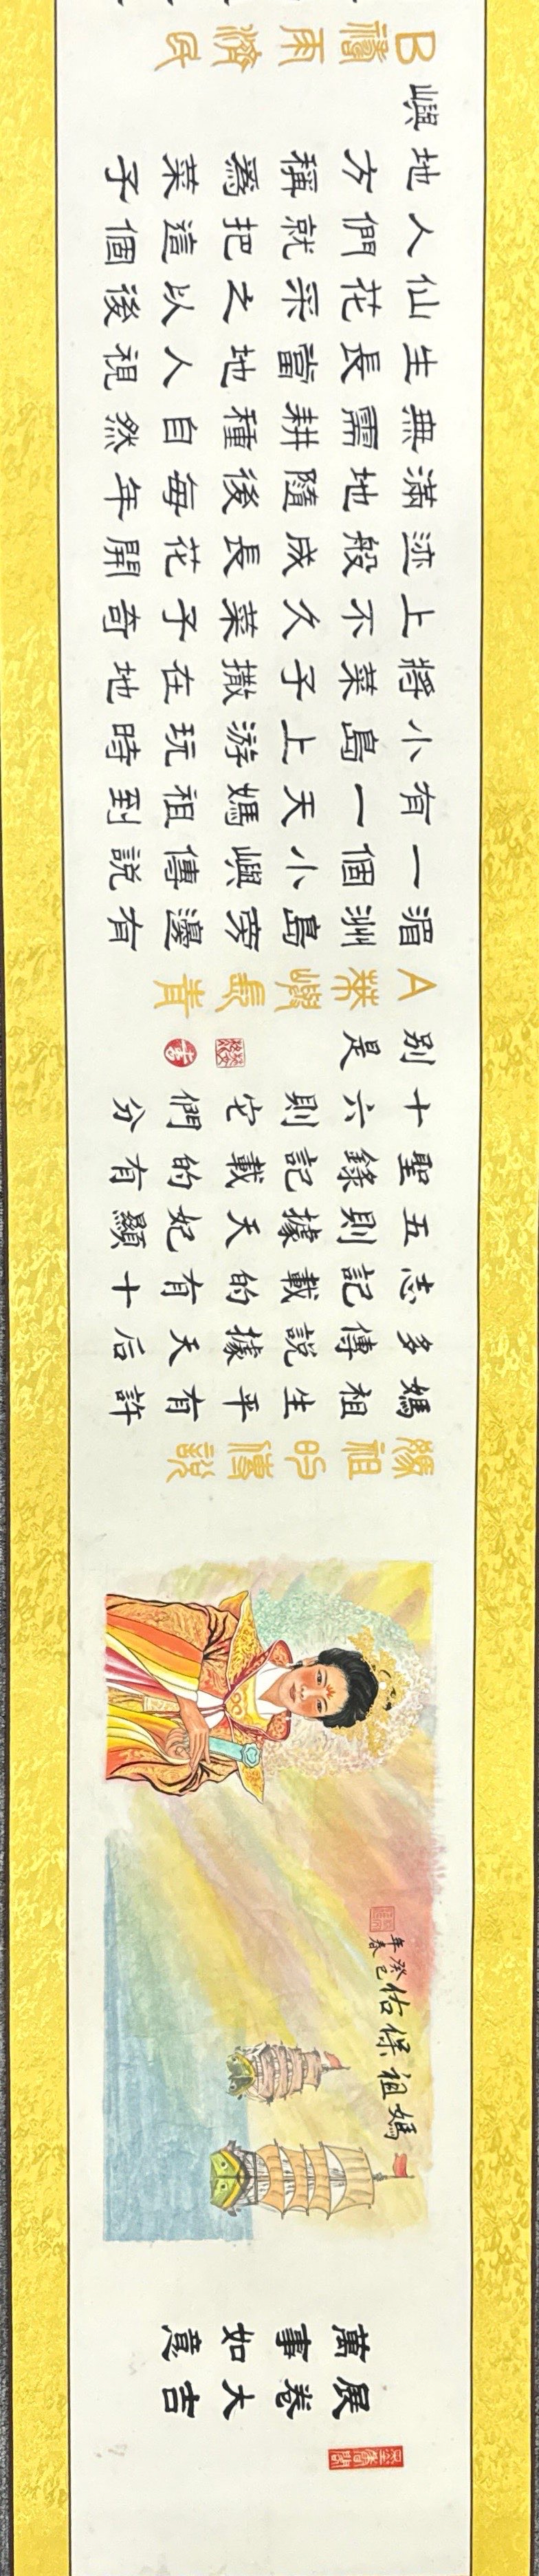 展卷大吉
萬事如意
媽祖保佑
癸巳
年春
媽祖的傳說
媽祖生平有許
多傳說據天后
志記載的有十
五則據天妃顯
聖錄記載的有
十六則它們分
別是
A 菜嶼長青
湄洲島旁邊有
一個小嶼傳說
有一天媽祖到
小島上游玩時
將菜子撒在地
上不久菜子奇
迹般成長花開
滿地隨後每年
無需耕種自然
生長當地人視
仙花采之以後
人們就把這個
地方稱爲菜子
嶼
B 禱雨濟民